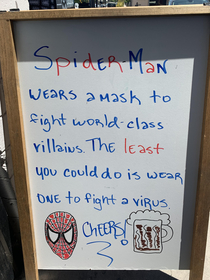 SpidER-MaN
WEARS a MASK to
fight WORLD-class
villains. THE least
you could do is WEAR
ONE to fight a VIRUS.
CHEERS!